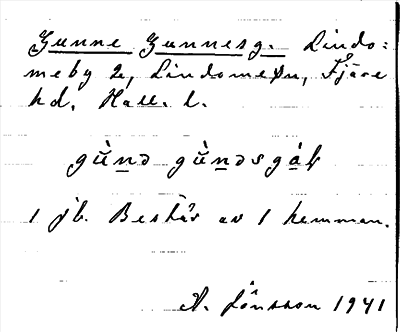 Gunne Gunnesg. Lindo:
meby 2, Lindome sn, Fjäre
hd, Hall. l.
gùnə gùnəsgáɽ
1 jb. Består av 1 hemman.
A. Jönsson 1941